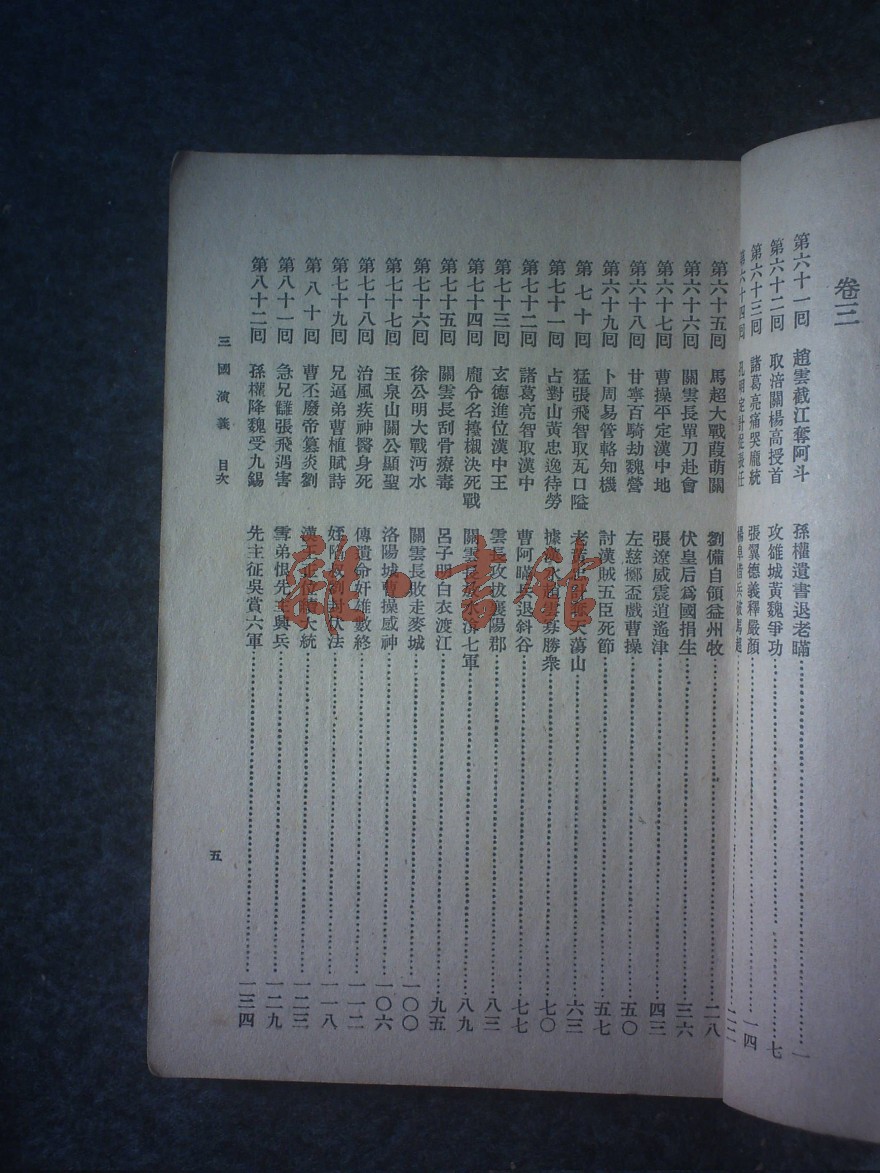 卷三
第六十一回 趙雲截江奪阿斗 孫權遺書退老瞞 一
第六十二回 取涪關楊高授首 攻雒城黃魏爭功 七
第六十三回 諸葛亮痛哭龐統 張翼德義釋嚴顏 一四
第六十四回 孔明定計捉張任 楊阜借兵破馬超
第六十五回 馬超大戰葭萌關 劉備自領益州牧 二八
第六十六回 關雲長單刀赴會 伏皇后爲國捐生 三六
第六十七回 曹操平定漢中地 張遼威震逍遙津 四三
第六十八回 甘寧百騎劫魏營 左慈擲盃戲曹操 五〇
第六十九回 卜周易管輅知機 討漢賊五臣死節 五七
第七十回 猛張飛智取瓦口隘 老黃忠計奪天蕩山 六三
第七十一回 占對山黃忠逸待勞 據漢水趙雲寡勝衆 七〇
第七十二回 諸葛亮智取漢中 曹阿瞞兵退斜谷 七七
第七十三回 玄德進位漢中王 雲長攻拔襄陽郡 八三
第七十四回 龐令名擡櫬決死戰 關雲長放水渰七軍 八九
第七十五回 關雲長刮骨療毒 呂子明白衣渡江 九五
第七十六回 徐公明大戰沔水 關雲長敗走麥城 一〇〇
第七十七回 玉泉山關公顯聖 洛陽城曹操感神 一〇六
第七十八回 治風疾神醫身死 傳遺命奸雄數終 一一二
第七十九回 兄逼弟曹植賦詩 姪陷叔劉封伏法 一一八
第八十回 曹丕廢帝篡炎劉 漢王正位續大統 一二三
第八十一回 急兄讎張飛遇害 雪弟恨先主興兵 一二九
第八十二回 孫權降魏受九錫 先主征吳賞六軍 一三四
三國演義 目次 五
雜·書館